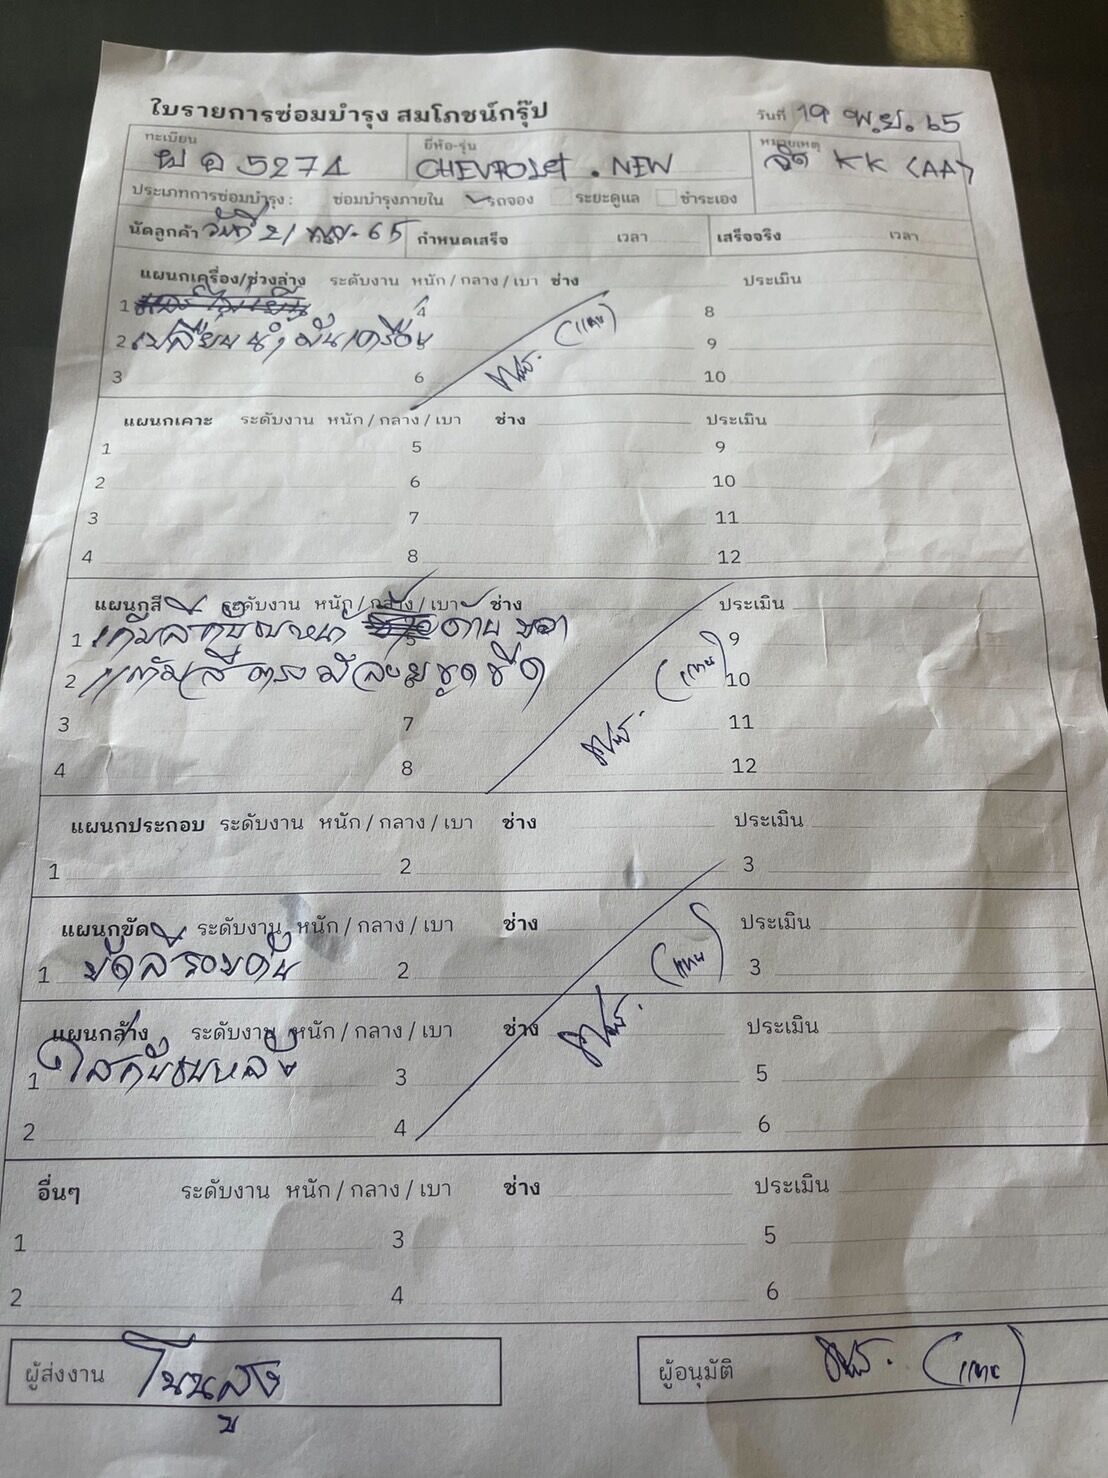 ใบรายการซ่อมบำรุง สมโภชน์กรุ๊ป
วันที่ 19 พ.ย. 65
ทะเบียน 5274 ยี่ห้อ-รุ่น CHEVROLET . NEW หมายเหตุ KK (AA)
ประเภทการซ่อมบำรุง : ซ่อมบำรุงภายใน รถจอง ระยะดูแล ชำระเอง
นัดลูกค้า วันที่ 21 พ.ย. 65 กำหนดเสร็จ เวลา เสร็จจริง เวลา
แผนกเครื่อง/ช่วงล่าง ระดับงาน หนัก / กลาง / เบา ช่าง ประเมิน
1 4 8
2 เปลี่ยนน้ำมันเครื่อง 9
3 6 10
แผนกเคาะ ระดับงาน หนัก / กลาง / เบา ช่าง ประเมิน
1 5 9
2 6 10
3 7 11
4 8 12
แผนกสี ระดับงาน หนัก / กลาง / เบา ช่าง ประเมิน
1 เก็บสีกันชนหน้า ด้านขวา 9
2 แต้มสีตรงมีรอยขูดขีด 10
3 7 11
4 8 12
แผนกประกอบ ระดับงาน หนัก / กลาง / เบา ช่าง ประเมิน
1 2 3
แผนกขัด ระดับงาน หนัก / กลาง / เบา ช่าง ประเมิน
1 ขัดสีรอบคัน 2 3
แผนกล้าง ระดับงาน หนัก / กลาง / เบา ช่าง ประเมิน
1 ใส่กันชนหลัง 3 5
2 4 6
อื่นๆ ระดับงาน หนัก / กลาง / เบา ช่าง ประเมิน
1 3 5
2 4 6
ผู้ส่งงาน ผู้อนุมัติ (แทน)